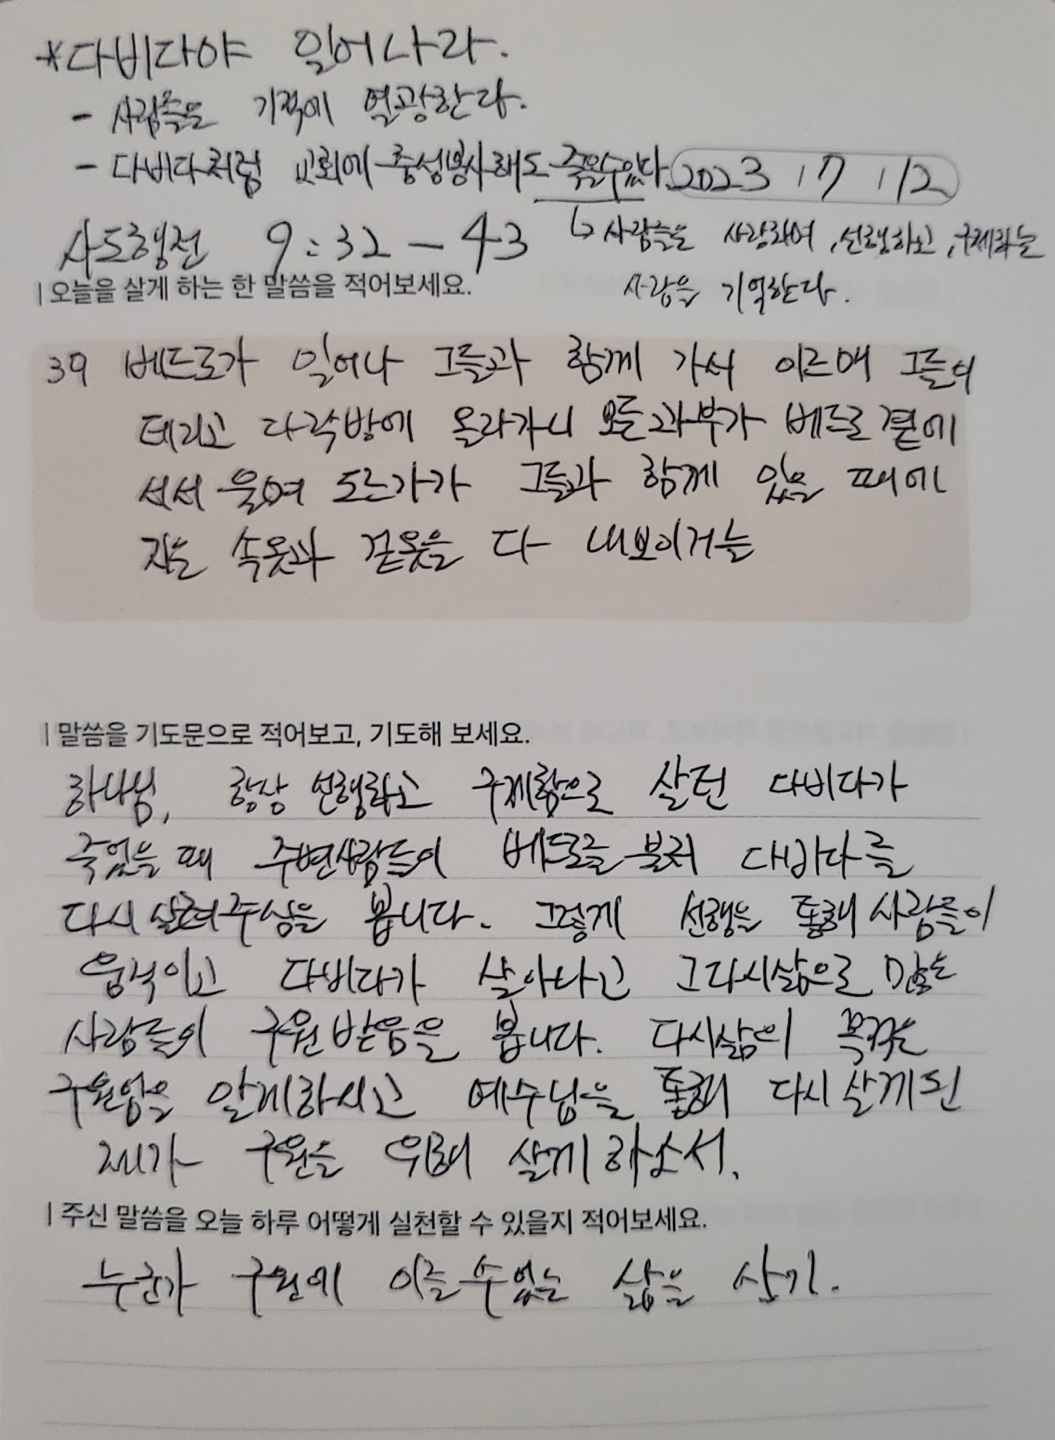 *다비다야 일어나라.
- 사람들은 기적에 열광한다.
- 다비다처럼 교회에 충성봉사해도 죽을수있다. 2023 / 7 / 12
사도행전 9:32-43 ↳ 사람들은 사랑하며, 선행하고, 구제하는
사람을 기억한다.
| 오늘을 살게 하는 한 말씀을 적어보세요.
39 베드로가 일어나 그들과 함께 가서 이르매 그들이
데리고 다락방에 올라가니 모든 과부가 베드로 곁에
서서 울며 도르가가 그들과 함께 있을 때에
지은 속옷과 겉옷을 다 내보이거늘
| 말씀을 기도문으로 적어보고, 기도해 보세요.
하나님, 항상 선행하고 구제함으로 살던 다비다가
죽었을 때 주변사람들이 베드로를 불러 다비다를
다시 살려주심을 봅니다. 그렇게 선행을 통해 사람들이
움직이고 다비다가 살아나고 그 다시삶으로 많은
사람들의 구원 받음을 봅니다. 다시삶의 목적은
구원임을 알게하시고 예수님을 통해 다시 살게된
제가 구원을 위해 살게 하소서.
| 주신 말씀을 오늘 하루 어떻게 실천할 수 있을지 적어보세요.
누군가 구원에 이를 수 있는 삶을 살기.